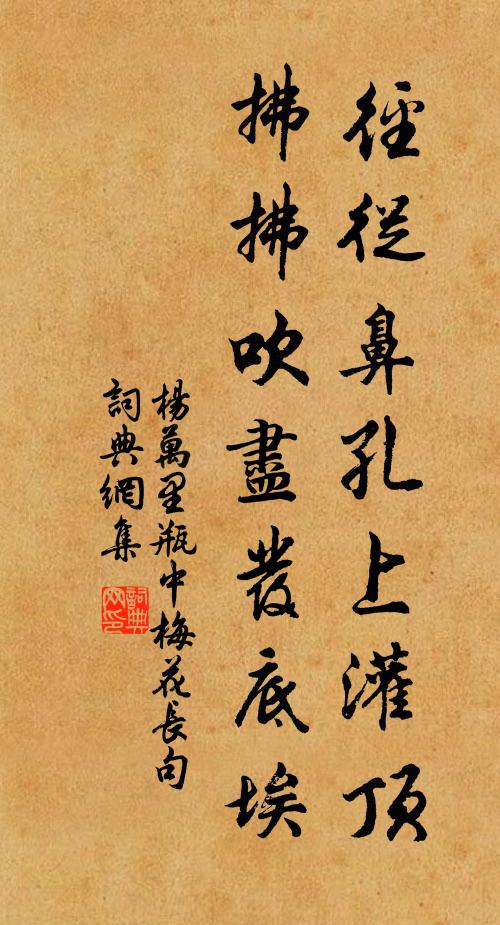 徑從鼻孔上灌頂
拂拂吹盡髮底埃
楊萬里瓶中梅花長句
詞典網集
詞典
网印